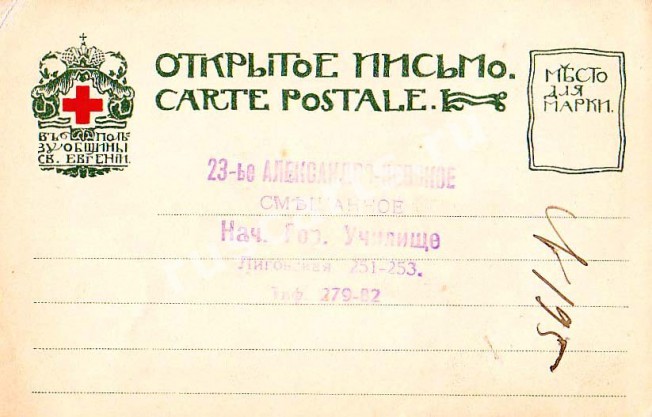 ОТКРЫТОЕ ПИСЬМО.
CARTE POSTALE.
МѢСТО
ДЛЯ
МАРКИ.
ВЪ ПОЛЬ
ЗУ ОБЩИНЫ
СВ. ЕВГЕНІИ.
23-ье АЛЕКСАНДРО-НЕВСКОЕ
СМѢШАННОЕ
Нач. Гор. Училище
Лиговская 251-253.
Тлф. 279-82